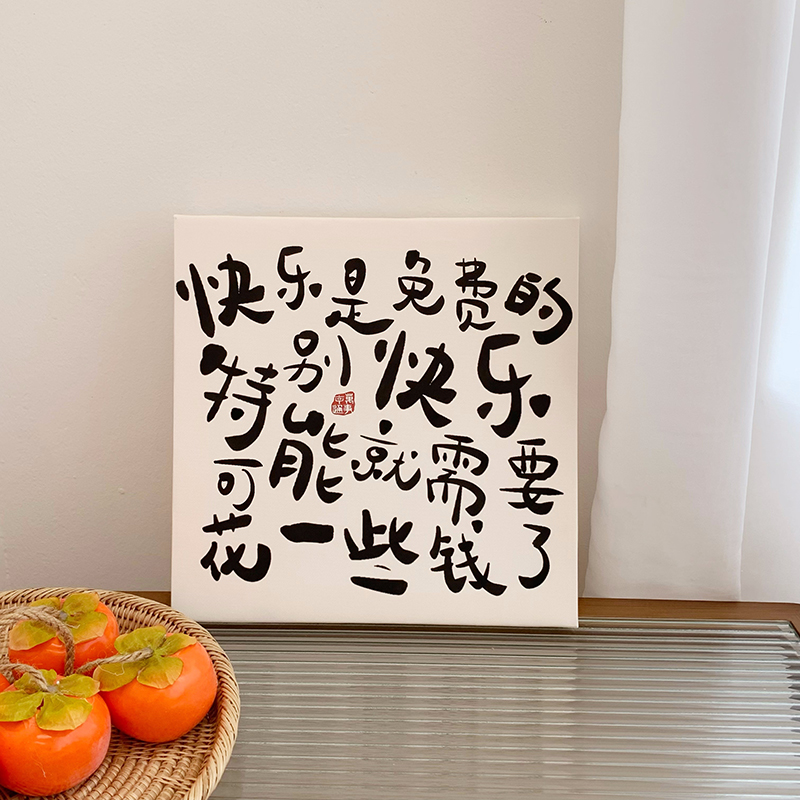 快乐是免费的
特别快乐
可能就需要
花一些钱了